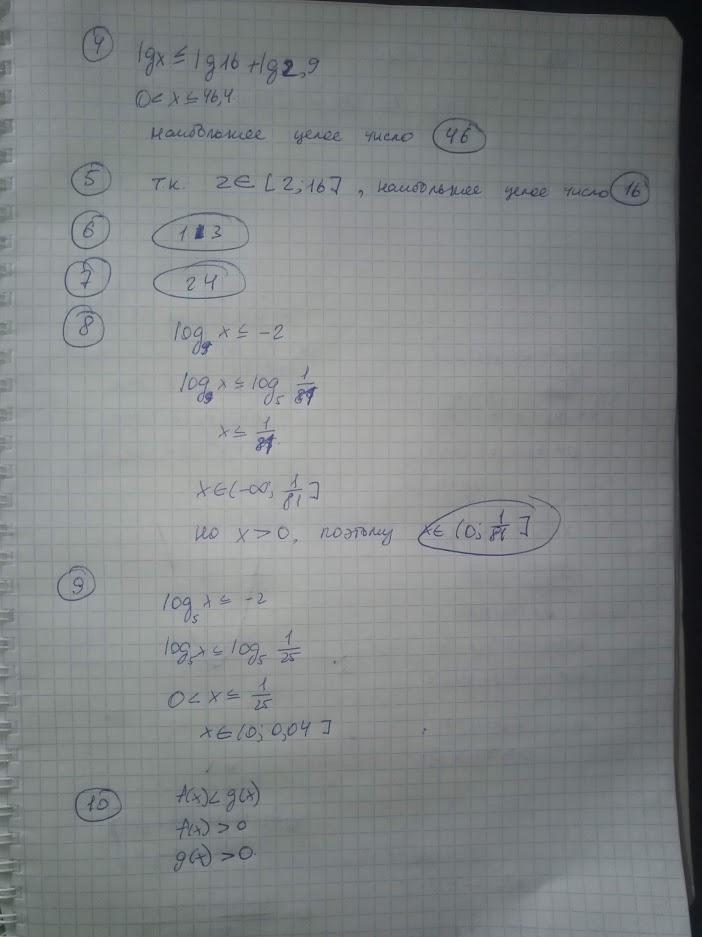 4 lgx ≤ lg16 + lg2,9
0 < x ≤ 46,4
наибольшее целое число 46
5 т.к. 2 ∈ [2; 16], наибольшее целое число 16
6 113
7 24
8 log₉ x ≤ -2
log₉ x ≤ log₅ 1/81
x ≤ 1/81
x ∈ (-∞; 1/81]
но x > 0, поэтому x ∈ (0; 1/81]
9 log₅ x ≤ -2
log₅ x ≤ log₅ 1/25
0 < x ≤ 1/25
x ∈ (0; 0,04]
10 f(x) < g(x)
f(x) > 0
g(x) > 0